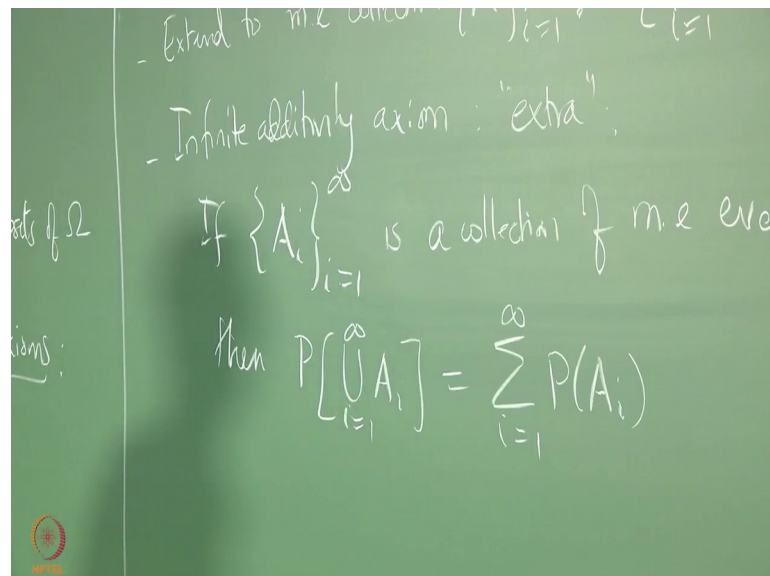 - Extend to m.e
- Infinite additivity axiom : "extra" ;
If {A_i}_{i=1}^∞ is a collection of m.e eve
then P[⋃_{i=1}^∞ A_i] = ∑_{i=1}^∞ P(A_i)
of Ω
NPTEL